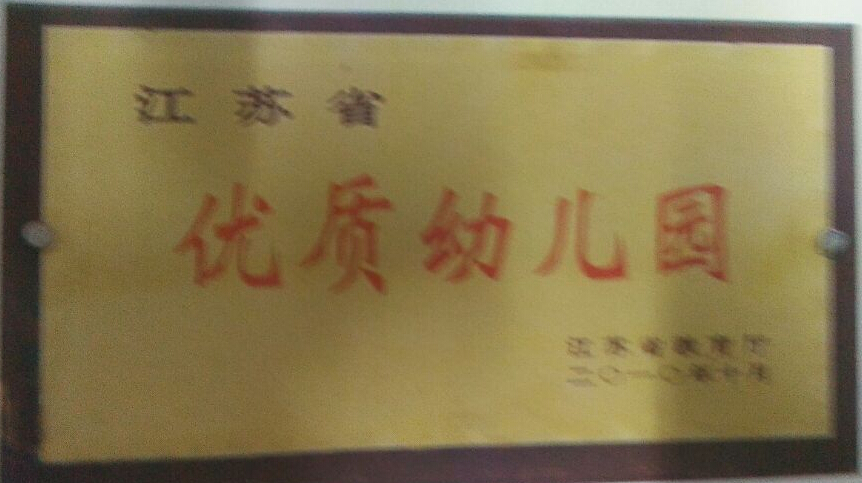 江苏省
优质幼儿园
江苏省教育厅
二〇一〇年十月